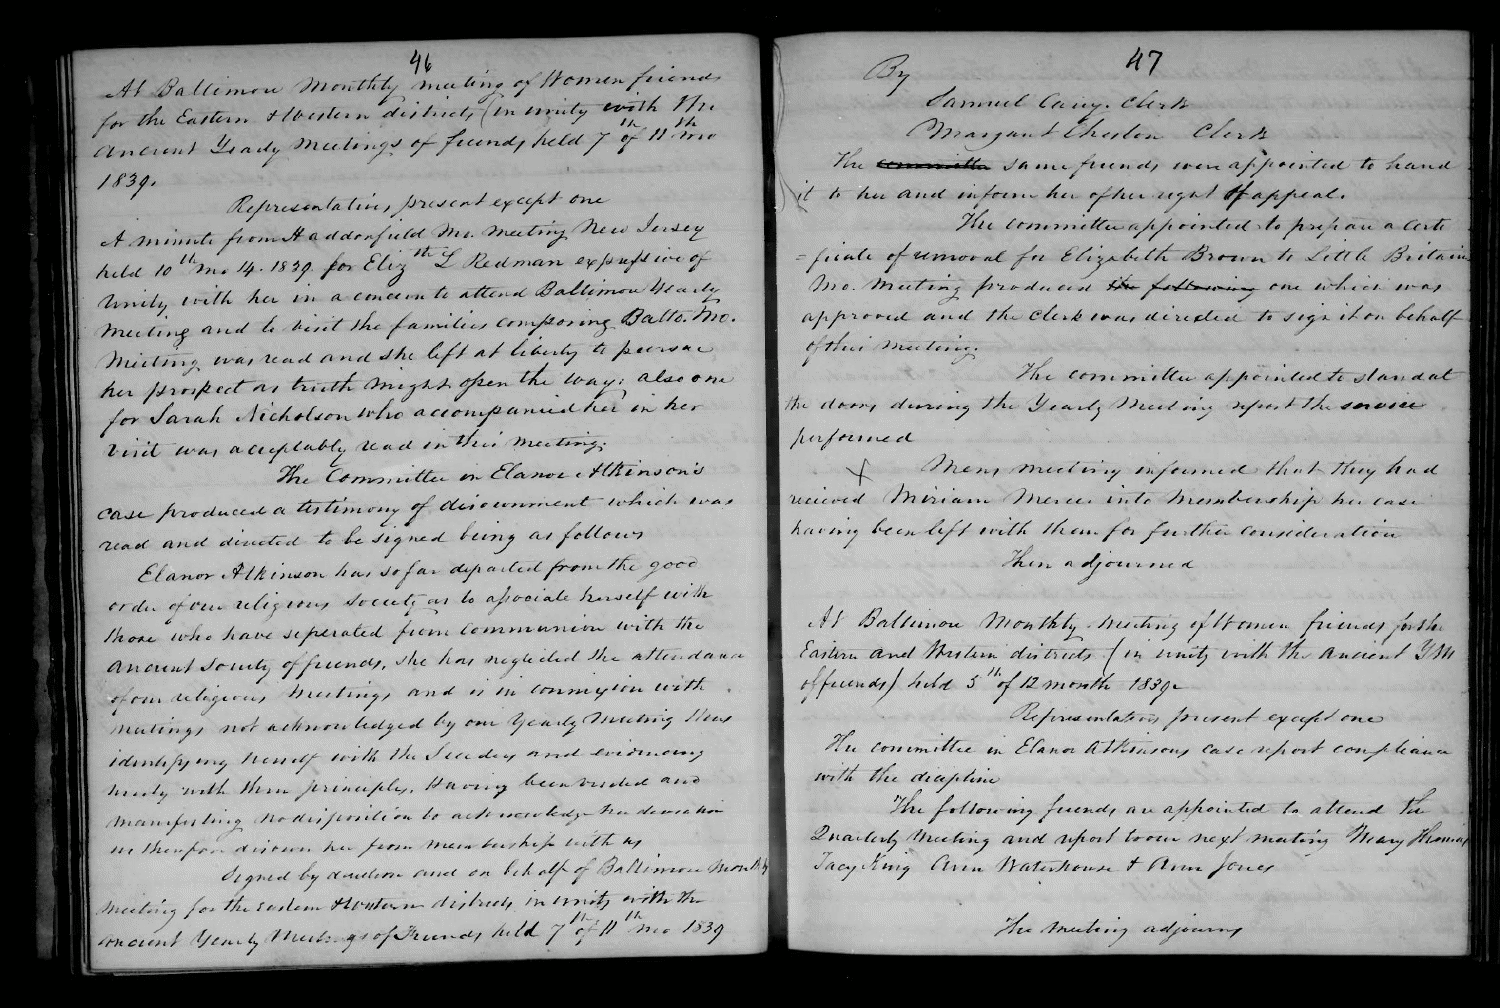 46
At Baltimore Monthly meeting of Women friends
for the Eastern & Western districts (in unity with the
ancient Yearly Meetings of friends held 7th of 11th mo
1839.
Representatives present except one
A minute from Haddonfield Mo. Meeting New Jersey
held 10th mo 14. 1839 for Elizth L Redman expressive of
Unity with her in a concern to attend Baltimore Yearly
Meeting and to visit the families composing Balto. Mo.
Meeting was read and she left at liberty to pursue
her prospect as truth might open the way; also one
for Sarah Nicholson who accompanied her in her
visit was acceptably read in this meeting.
The Committee in Elanor Atkinson's
case produced a testimony of disownment which was
read and directed to be signed being as follows
Elanor Atkinson has so far departed from the good
order of our religious society as to associate herself with
those who have seperated from communion with the
ancient Society of friends, she has neglected the attendance
of our religious meetings and is in connexion with
meetings not acknowledged by our Yearly Meeting thus
identifying herself with the Seceders and evidencing
unity with their principles. Having been visited and
manifesting no disposition to acknowledge her deviation
we therefore disown her from membership with us
Signed by direction and on behalf of Baltimore Monthly
meeting for the eastern & Western districts in unity with the
ancient Yearly Meetings of Friends held 7th of 11th mo 1839
47
By
Samuel Carey. Clerk
Margaret Cheston Clerk
The committee same friends were appointed to hand
it to her and inform her of her right of appeal.
The committee appointed to prepare a certi
=ficate of removal for Elizabeth Brown to Little Britain
Mo. Meeting produced the following one which was
approved and the Clerk was directed to sign it on behalf
of this meeting.
The committee appointed to stand at
the doors during the Yearly Meeting report the service
performed
X Mens meeting informed that they had
recieved Miriam Mercer into Membership her case
having been left with them for further consideration
Then adjourned
At Baltimore Monthly Meeting of Women friends for the
Eastern and Western districts (in unity with the ancient Y M
of friends) held 5th of 12 month 1839
Representatives present except one
The committee in Elanor Atkinsons case report compliance
with the dicipline
The following friends are appointed to attend the
Quarterly Meeting and report to our next meeting Mary Thomas
Tacy King Ann Waterhouse & Ann Jones
The meeting adjourns